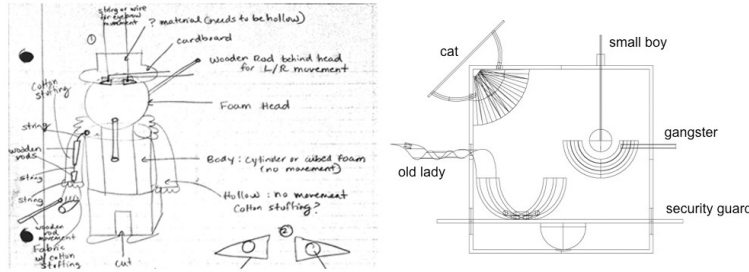 string or wire
for eyebrow
movement
①
? material (needs to be hollow)
cardboard
Wooden Rod behind head
for L/R movement
Cotton
stuffing
Foam Head
string
wooden
rods
string
string
Body: Cylinder or cubed foam
(no movement)
Hollow: no movement
Cotton stuffing?
wooden
rod
movement
Fabric
w/ cotton
stuffing
cut
②
cat
small boy
gangster
old lady
security guard